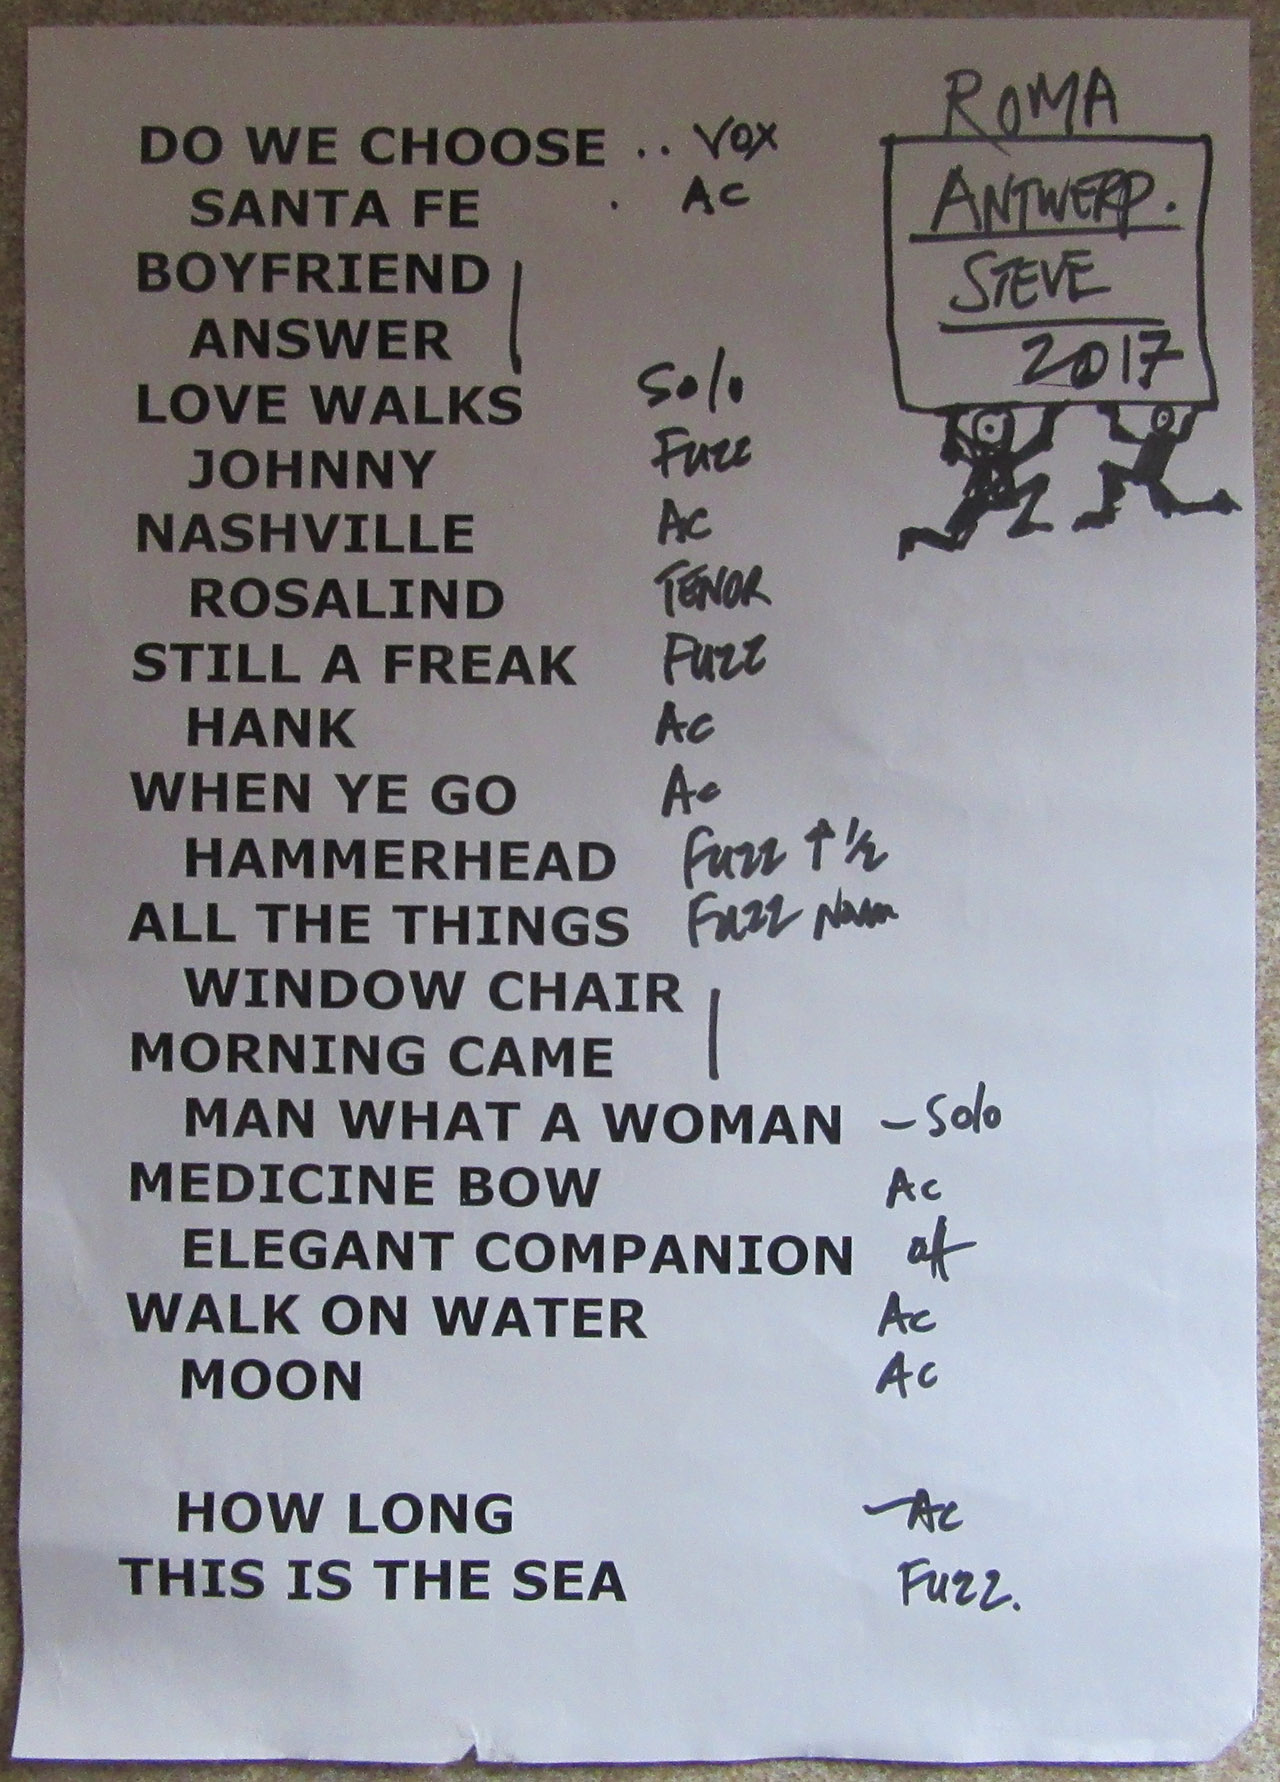 ROMA
ANTWERP.
STEVE
2017
DO WE CHOOSE .. VOX
SANTA FE . AC
BOYFRIEND
ANSWER
LOVE WALKS Solo
JOHNNY Fuzz
NASHVILLE AC
ROSALIND TENOR
STILL A FREAK Fuzz
HANK AC
WHEN YE GO AC
HAMMERHEAD Fuzz ↑ 1/2
ALL THE THINGS Fuzz
WINDOW CHAIR
MORNING CAME
MAN WHAT A WOMAN – Solo
MEDICINE BOW AC
ELEGANT COMPANION
WALK ON WATER AC
MOON AC
HOW LONG – AC
THIS IS THE SEA Fuzz.